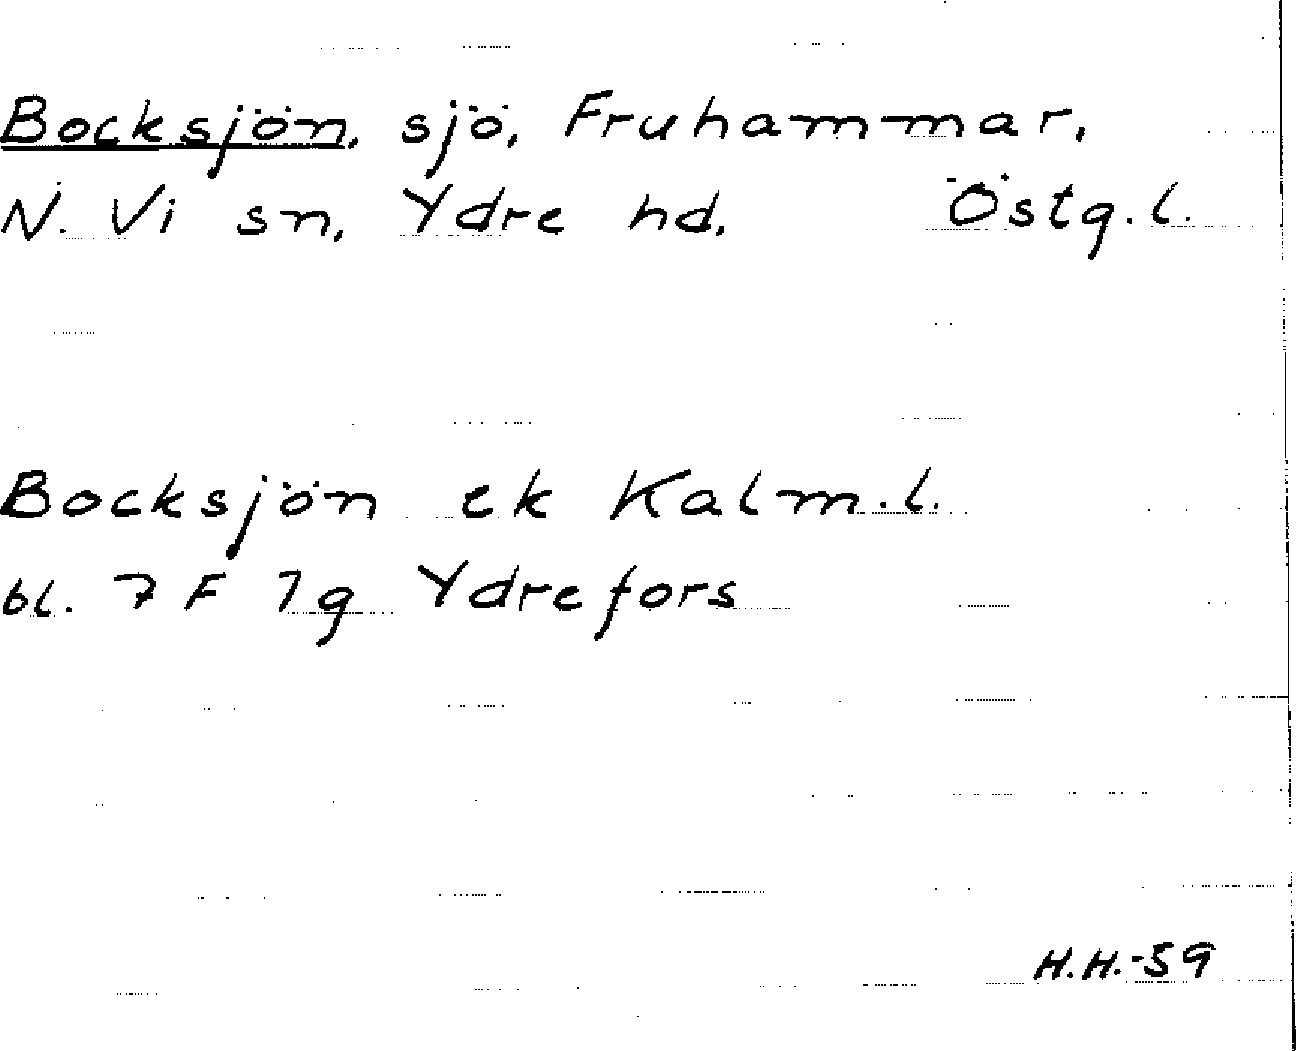 Bocksjön, sjö, Fruhammar,
N. Vi sn, Ydre hd. Östg. l.
Bocksjön ek Kalm. l.
bl. 7 F 7g Ydrefors
H.H.-59